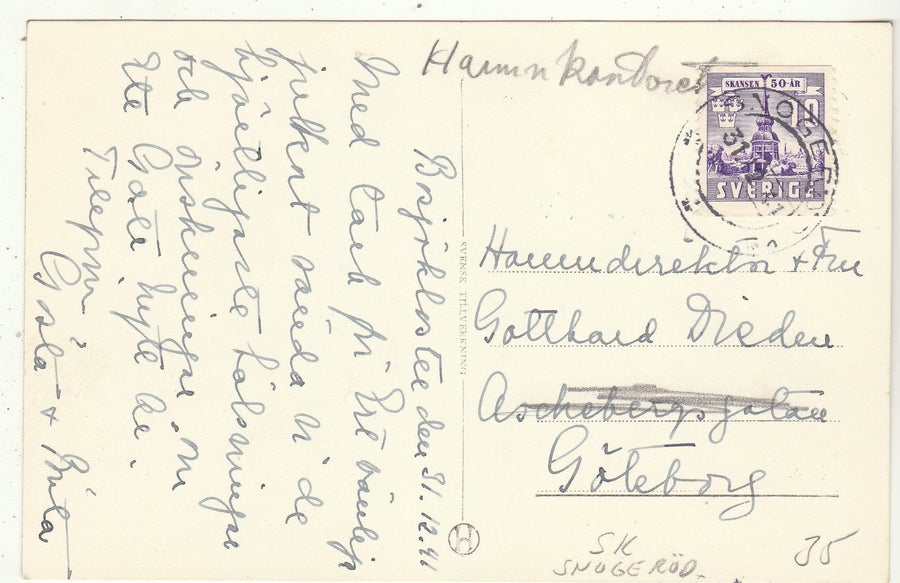 Hamnkontoret
SKANSEN 50-ÅR
10
SVERIGE
SNOGERÖD
31 12 41
Bosjökloster den 31.12.41
Med tack för Ert vänliga
julkort sända vi de
hjärtligaste hälsningar
och önskningar om
Ett Gott nytt år.
Gösta + Brita
SVENSK TILLVERKNING
H
Hamndirektör + Fru
Gotthard Dieden
Aschebergsgatan
Göteborg
SK
SNOGERÖD.
35